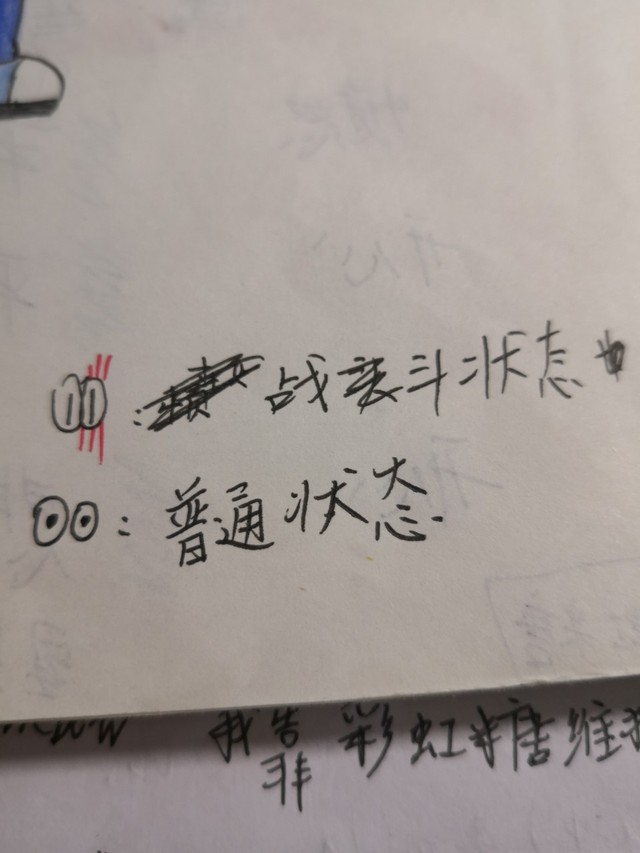 ：战斗状态
：普通状态
我告非 彩虹糖维